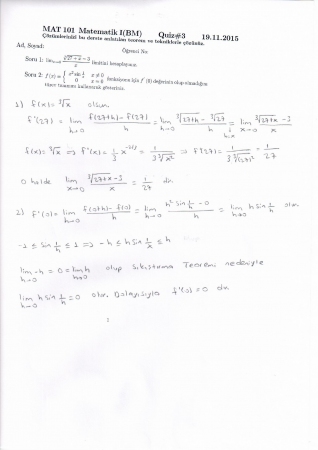 MAT 101 Matematik I(BM) Quiz#3 19.11.2015
Çözümlerinizi bu derste anlatılan teorem ve tekniklerle çözünüz.
Ad, Soyad: Öğrenci No:
Soru 1: lim x→0 (∛(27+x) − 3)/x limitini hesaplayınız.
Soru 2: f(x) = { x² sin 1/x x ≠ 0 ; 0 x = 0 fonksiyonu için f'(0) değerinin olup olmadığını
türev tanımını kullanarak gösteriniz.
1) f(x) = ∛x olsun.
f'(27) = lim h→0 (f(27+h) − f(27))/h = lim h→0 (∛(27+h) − ∛27)/h = lim x→0 (∛(27+x) − 3)/x
f(x) = ∛x ⇒ f'(x) = 1/3 x^(-2/3) = 1/(3∛x²) ⇒ f'(27) = 1/(3∛(27)²) = 1/27
O halde lim x→0 (∛(27+x) − 3)/x = 1/27 dir.
2) f'(0) = lim h→0 (f(0+h) − f(0))/h = lim h→0 (h² sin 1/h − 0)/h = lim h→0 h sin 1/h olur.
−1 ≤ sin 1/h ≤ 1 ⇒ −h ≤ h sin 1/h ≤ h
lim h→0 −h = 0 = lim h→0 h olup Sıkıştırma Teoremi nedeniyle
lim h→0 h sin 1/h = 0 olur. Dolayısıyla f'(0) = 0 dır.